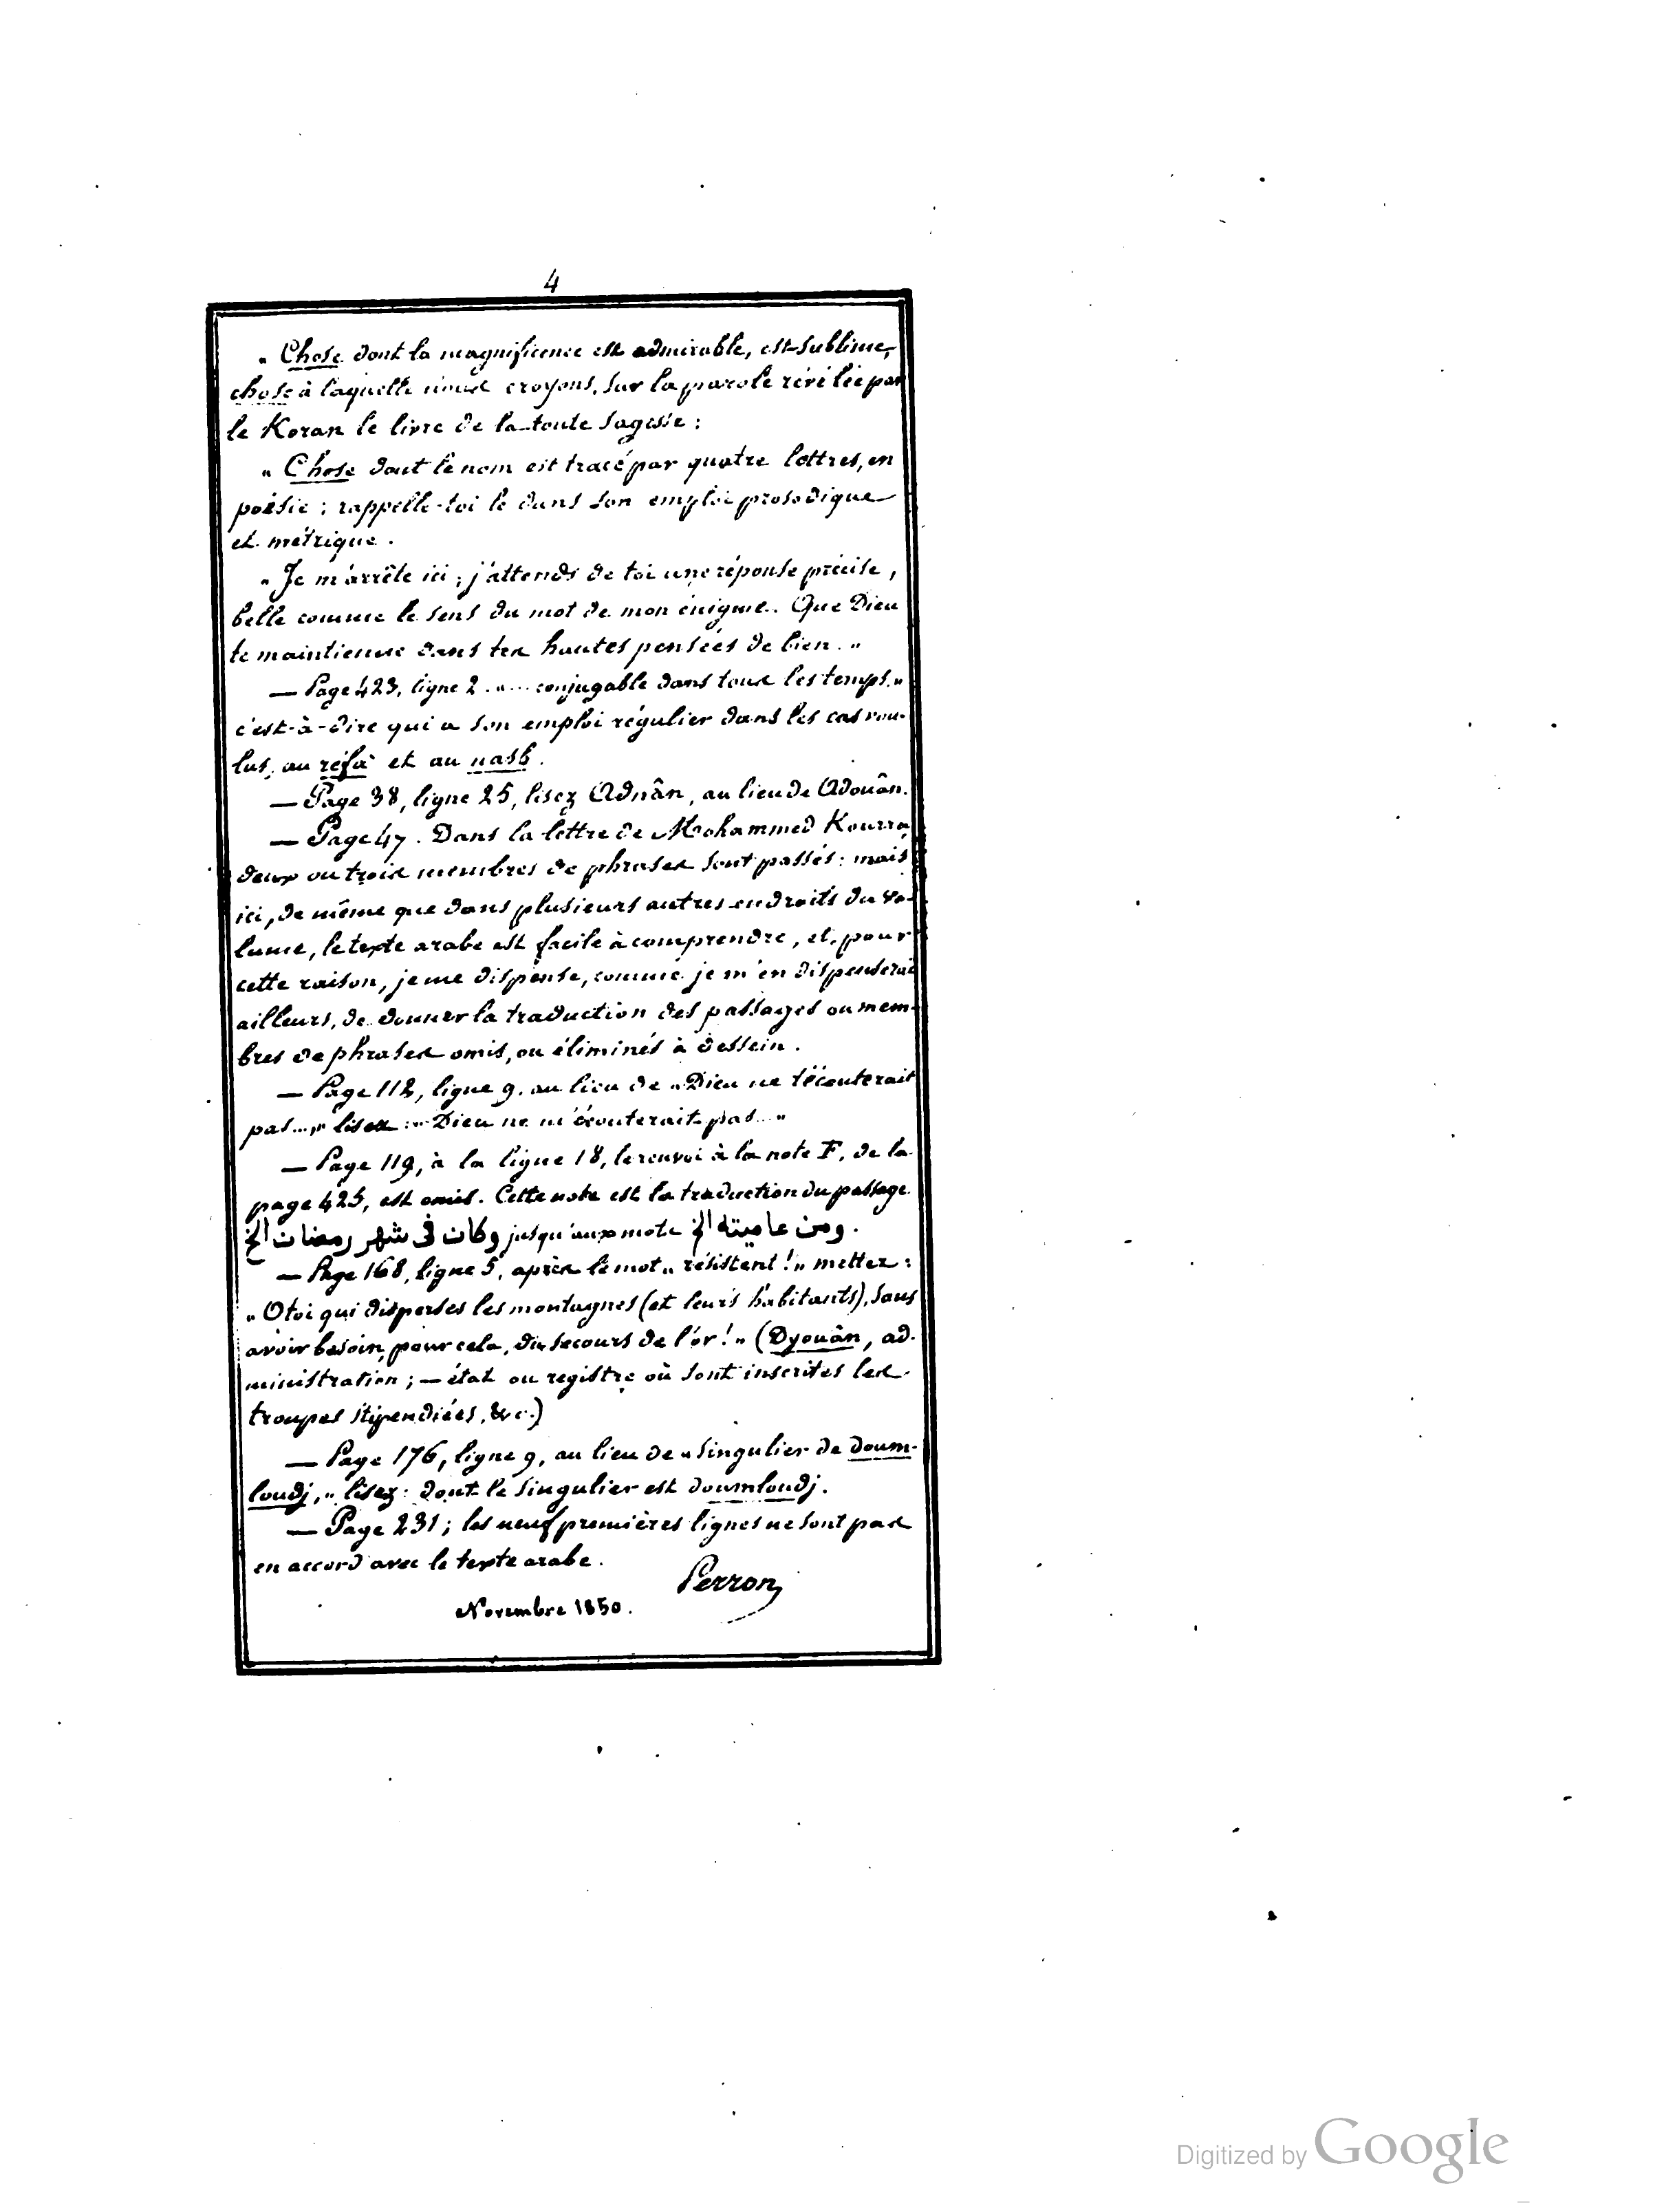 4
„ Chose dont la magnificence est admirable, est sublime,
chose à laquelle nous croyons, sur la parole révélée par
le Koran le livre de la toute sagesse :
„ Chose dont le nom est tracé par quatre lettres, en
poésie ; rappelle-toi le dans son emploi prosodique
et métrique .
„ Je m'arrête ici ; j'attends de toi une réponse précise,
belle comme le sens du mot de mon énigme. Que Dieu
te maintienne dans tes hautes pensées de bien. „
— Page 423, ligne 2. „ ... conjugable dans tous les temps. „
c'est-à-dire qui a son emploi régulier dans les cas vou-
lus, au réfa et au nasb.
— Page 38, ligne 25, lisez Adnân, au lieu de Adouân.
— Page 47. Dans la lettre de Mohammed Kourra,
deux ou trois membres de phrases sont passés : mais
ici, de même que dans plusieurs autres endroits du vo-
lume, le texte arabe est facile à comprendre, et, pour
cette raison, je me dispense, comme je m'en dispenserai
ailleurs, de donner la traduction des passages ou mem-
bres de phrases omis, ou éliminés à dessein.
— Page 112, ligne 9. au lieu de „ Dieu ne t'écouterait
pas..., „ lisez : „ Dieu ne m'écouterait pas... „
— Page 119, à la ligne 18, le renvoi à la note F, de la
page 425, est omis. Cette note est la traduction du passage
وكان فى شهر رمضان الخ jusqu'aux mots ومن عاميته الخ .
— Page 168, ligne 5, après le mot „ résistent ! „ mettez :
„ O toi qui disperses les montagnes (et leurs habitants), sans
avoir besoin, pour cela, du secours de l'or ! „ (Dyouân, ad-
ministration ; — état ou registre où sont inscrites les
troupes stipendiées, &c.)
— Page 176, ligne 9, au lieu de „ singulier de doum-
loudj, „ lisez : dont le singulier est doumloudj.
— Page 231 ; les neuf premières lignes ne sont pas
en accord avec le texte arabe.
Perron
Novembre 1850.
Digitized by Google